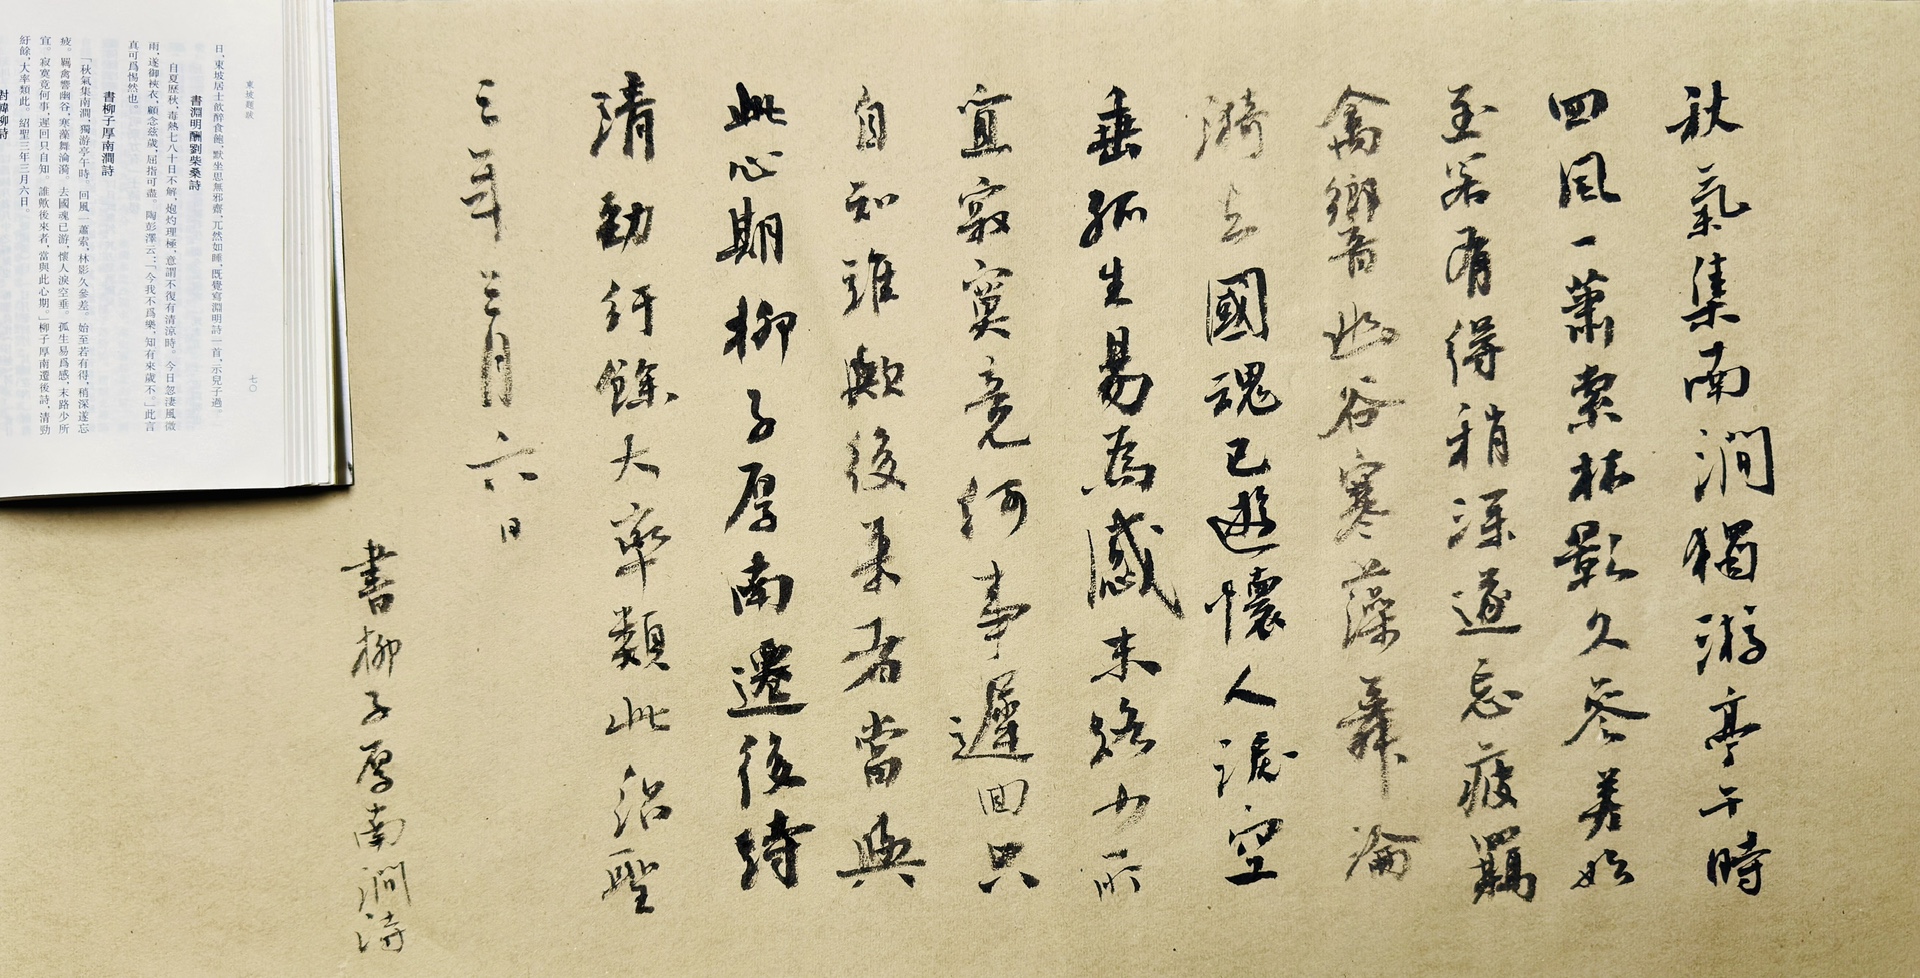 秋氣集南澗獨游亭午時
回風一蕭索林影久參差始
至若有得稍深遂忘疲羈
禽響幽谷寒藻舞淪
漪去國魂已遊懷人淚空
垂孤生易為感末路少所
宜寂寞竟何事遲回只
自知誰歟後來者當與
此心期柳子厚南遷後詩
清勁紆餘大率類此紹聖
三年三月六日
書柳子厚南澗詩
東坡題跋
七〇
日，東坡居士飲醉食飽，默坐思無邪齋，兀然如睡，既覺，寫淵明詩一首，示兒子過。
書淵明酬劉柴桑詩
自夏歷秋，毒熱七八十日不解，炮灼理極，意謂不復有清涼時。今日忽淒風微
雨，遂御裌衣，顧念茲歲，屈指可盡。陶彭澤云：「今我不爲樂，知有來歲不。」此言
真可爲惕然也。
書柳子厚南澗詩
「秋氣集南澗，獨游亭午時。回風一蕭索，林影久參差。始至若有得，稍深遂忘
疲。羈禽響幽谷，寒藻舞淪漪。去國魂已游，懷人淚空垂。孤生易爲感，末路少所
宜。寂寞竟何事，遲回只自知。誰歟後來者，當與此心期。」柳子厚南遷後詩，清勁
紆餘，大率類此。紹聖三年三月六日。